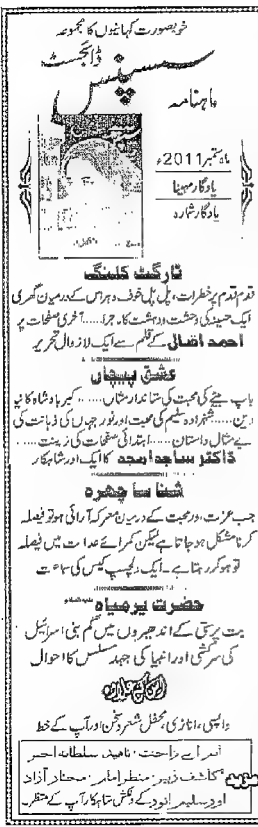 خوبصورت کہانیوں کا مجموعہ
ماہنامہ
سسپنس
ڈائجسٹ
ماہ ستمبر 2011ء
یادگار مہینا
یادگار شمارہ
ٹارگٹ کلنگ
قدم قدم پر خطرات، پل پل خوف و ہراس کے درمیان گھری
ایک حسینہ کی وحشت و دہشت کا رجز.... آخری صفحات پر
احمد اقبال کے قلم سے ایک لازوال تحریر
عشق پیچاں
باپ بیٹے کی محبت کی شاندار مثال..... اکبر بادشاہ کا
دین..... شہزادہ سلیم کی محبت اور نور جہاں کی ذہانت کی
بے مثال داستان..... ابتدائی صفحات کی زینت.....
ڈاکٹر ساجد امجد کا ایک اور شاہکار
شناسا چہرہ
جب عزت اور محبت کے درمیان معرکہ آرائی ہو تو فیصلہ
کرنا مشکل ہو جاتا ہے لیکن کمرائے عدالت میں فیصلہ
تو ہو کر رہتا ہے۔ ایک دلچسپ کیس کی سماعت
حضرت یرمیاہ علیہ السلام
بت پرستی کے اندھیروں میں گم بنی اسرائیل
کی سرکشی اور انبیا کی جہد مسلسل کا احوال
اس کے علاوہ
واپسی، اناڑی، محفل شعر و سخن اور آپ کے خط
مزید
ایم اے راحت، ناہید سلطانہ اختر
کاشف زبیر، منظر امام، مختار آزاد
اور سلیم انور کے دلکش شاہکار آپ کے منتظر۔